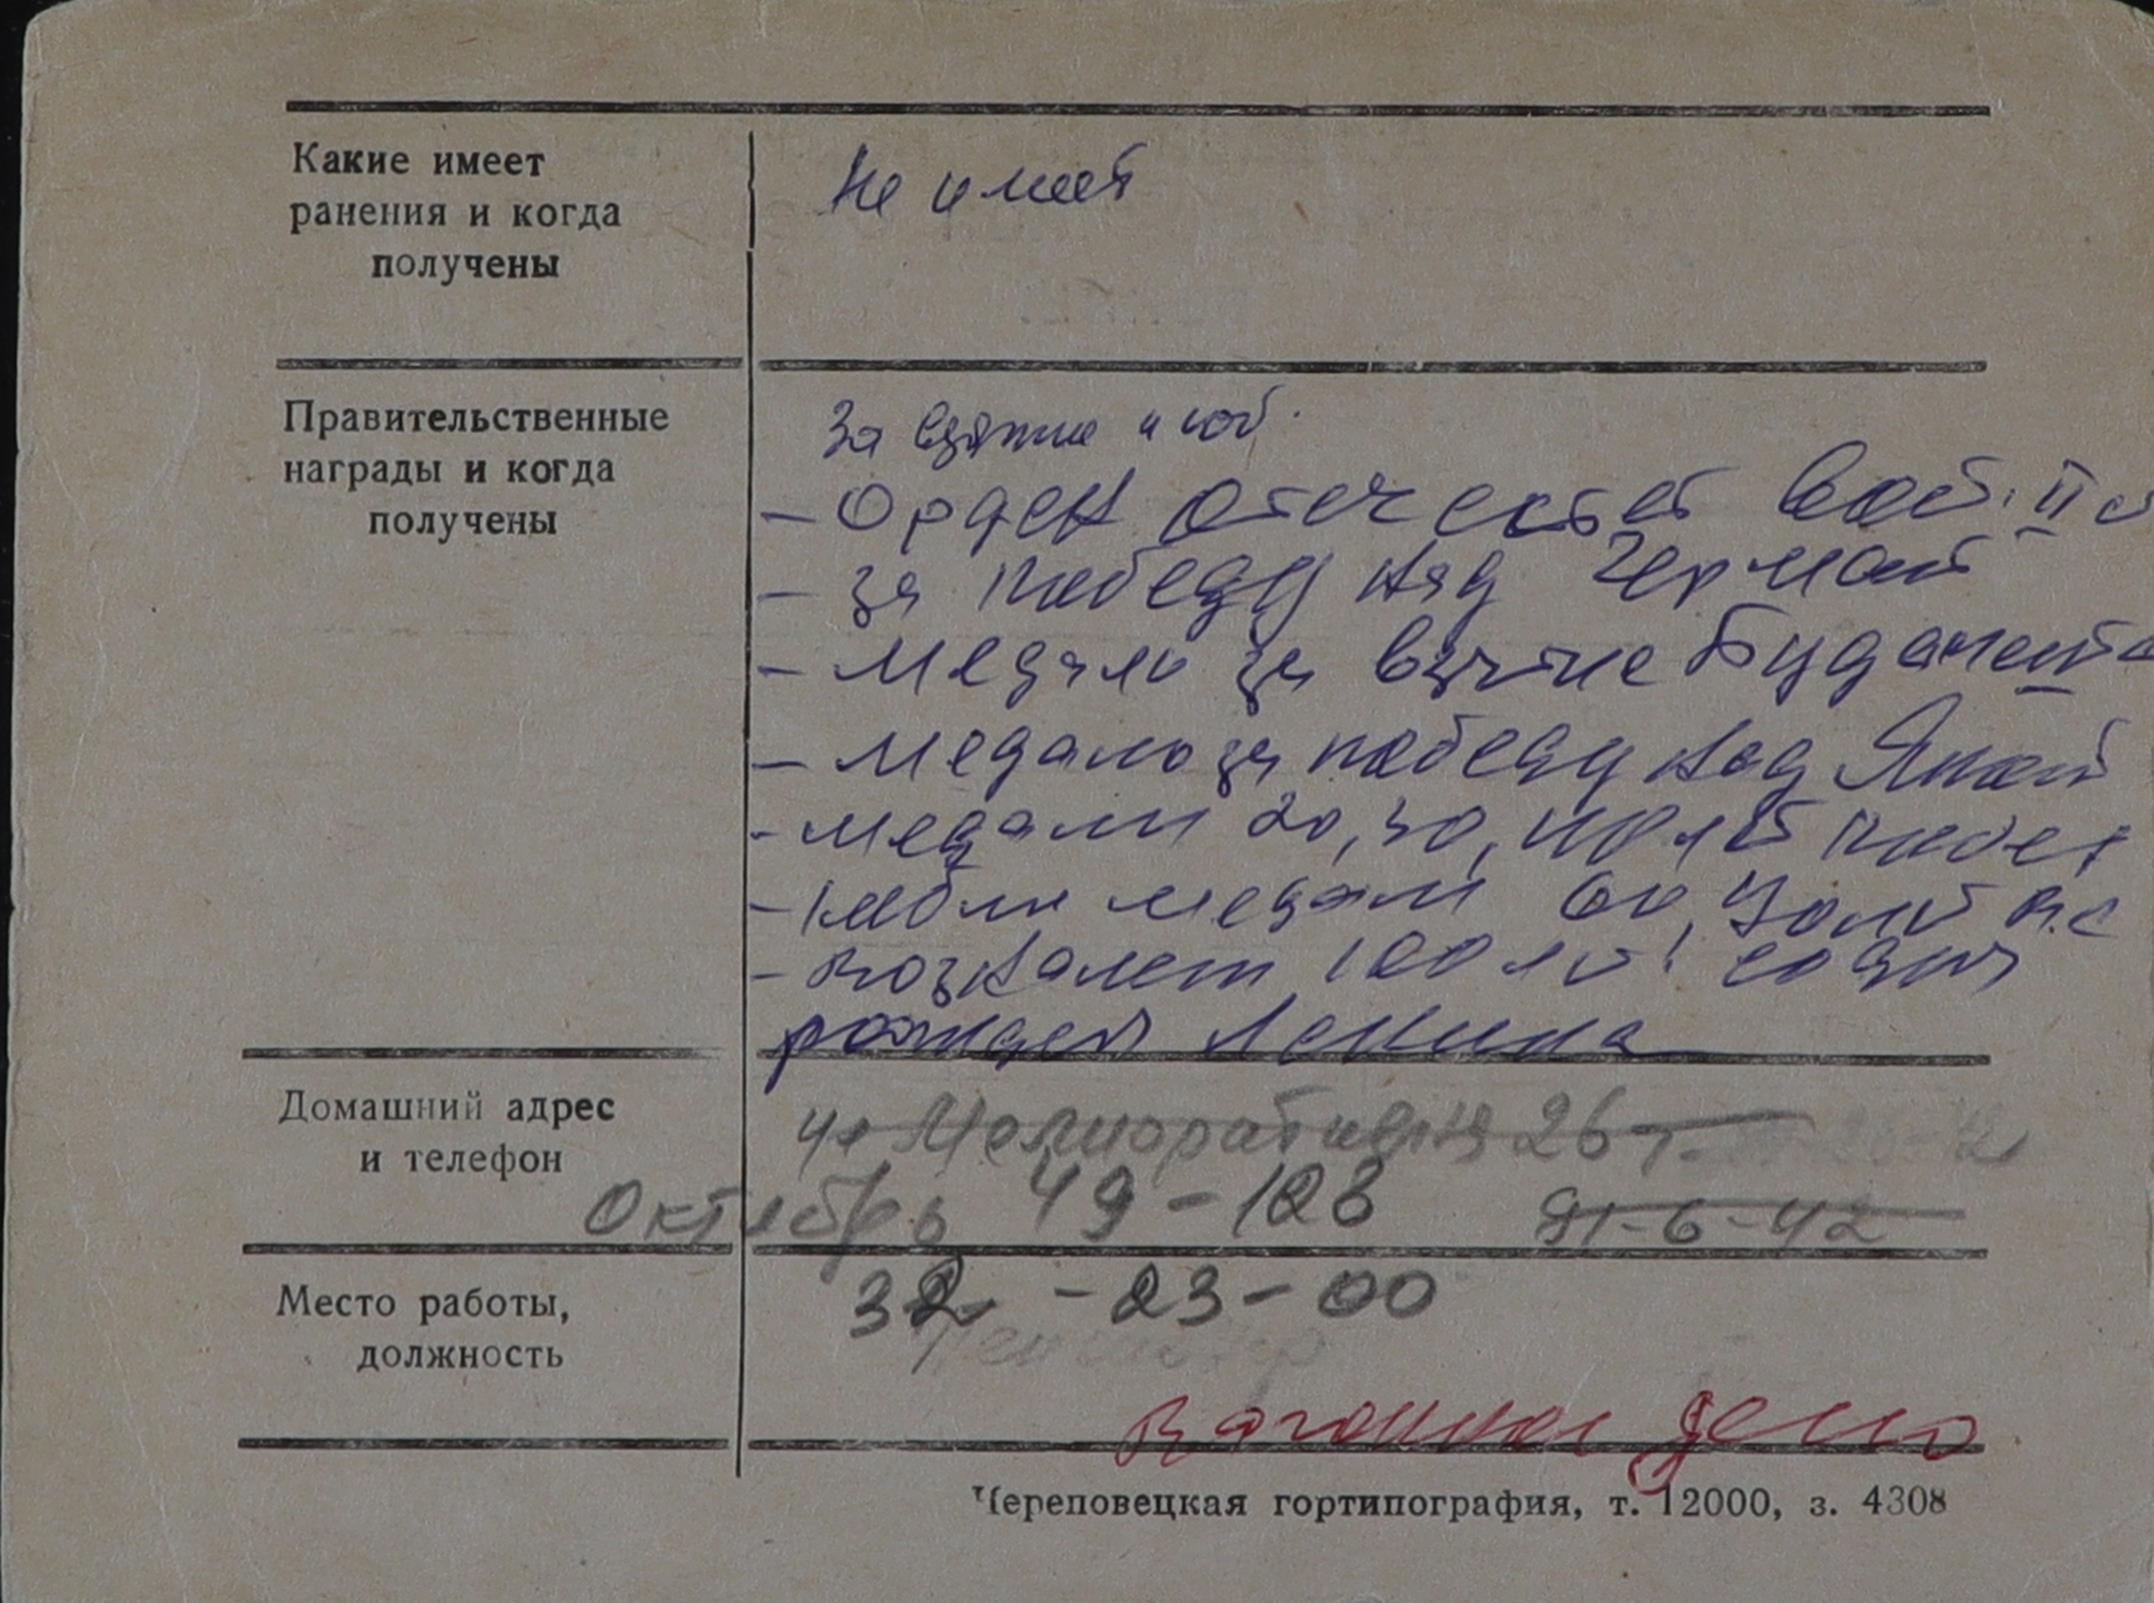 Какие имеет
ранения и когда
получены
Не имеет
Правительственные
награды и когда
получены
За взятие
- Орден отечест II
- за победу над Герман
- медаль за взятие Будапешта
- медаль за победу над Япон
- медали 20, 30, 40 лет побед
- Юбил медали 60, 70 лет в.с
- в ознамен 100 лет со дня
рожден Ленина
Домашний адрес
и телефон
ул Мелиоративная 26
Октябрь 49-128 91-6-42
Место работы,
должность
32-23-00
Пенсионер
Вагонное депо
Череповецкая гортипография, т. 12000, з. 4308